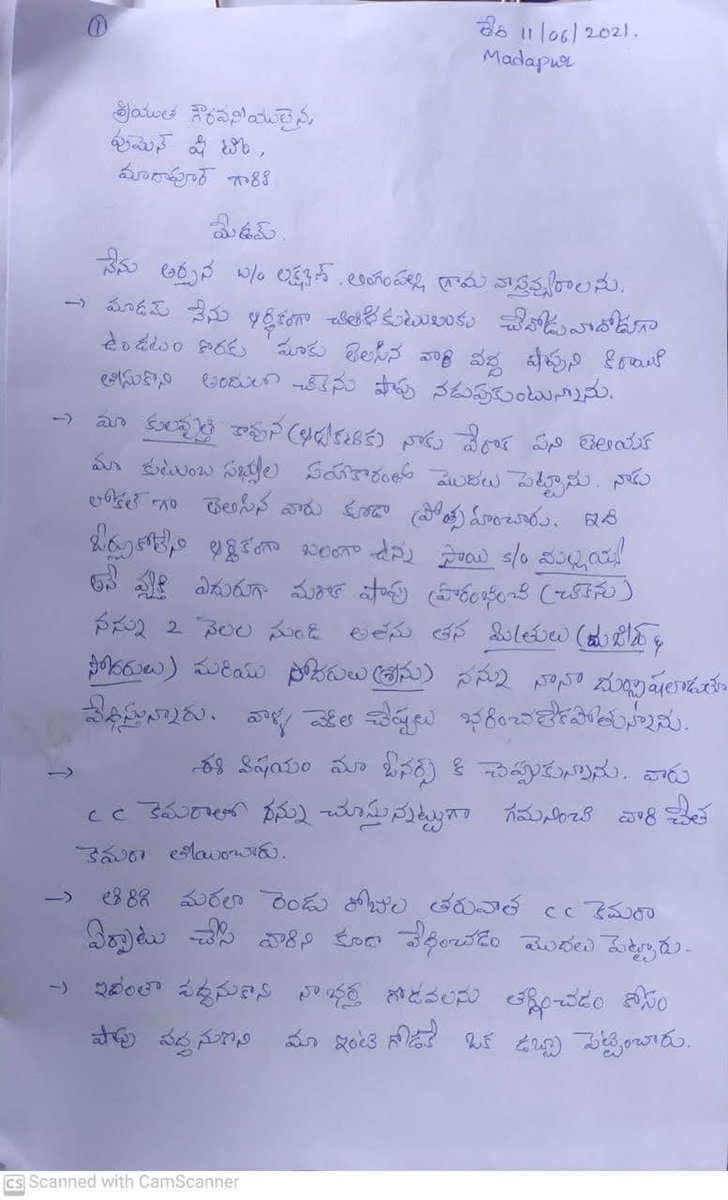 ①
తేది 11/06/2021.
Madapur
శ్రీయుత గౌరవనీయులైన,
వుమెన్ షి టీం,
మాదాపూర్ గారికి
మేడమ్.
నేను అర్చన w/o లక్ష్మణ్. అంగంపల్లి గ్రామ వాస్తవ్యురాలను.
→ మాడమ్ నేను ఆర్థికంగా చితికి కుటుంబంకు చేదోడువాదోడుగా
ఉండటం కొరకు మాకు తెలిసిన వారి వద్ద షాపుని కిరాయికి
తీసుకొని అందులో చికెను షాపు నడుపుకుంటున్నాను.
→ మా కులవృత్తి కావున (ఆరెకటిక) నాకు వేరొక పని తెలియక
మా కుటుంబ సభ్యుల సహకారంతో మొదలు పెట్టాను. నాకు
లోకల్ గా తెలిసిన వారు కూడా ప్రోత్సహించారు. ఇది
ఓర్చుకోలేని ఆర్థికంగా బలంగా ఉన్న సాయి s/o మల్లయ్య
అనే వ్యక్తి ఎదురుగా మరొక షాపు ప్రారంభించి (చికెను)
నన్ను 2 నెలల నుండి అతను తన మిత్రులు (&
సోదరులు) మరియు సోదరులు (శ్రీను) నన్ను నానా దుర్భాషలాడుతూ
వేధిస్తున్నారు. వాళ్ళ వెకిలి చేష్టలు భరించలేకపోతున్నాను.
→ ఈ విషయం మా ఓనర్స్ కి చెప్పుకున్నాను. వారు
c c కెమరాతో నన్ను చూస్తున్నట్టుగా గమనించి వారి చేత
కెమరా తీయించారు.
→ తిరిగి మరలా రెండు రోజుల తరువాత c c కెమరా
ఏర్పాటు చేసి వారిని కూడా వేధించడం మొదలు పెట్టారు.
→ ఇదంతా వద్దనుకొని నా భర్త గొడవలను తగ్గించడం కోసం
షాపు వద్దనుకొని మా ఇంటి గోడకే ఒక డబ్బా పెట్టించారు.
CS Scanned with CamScanner